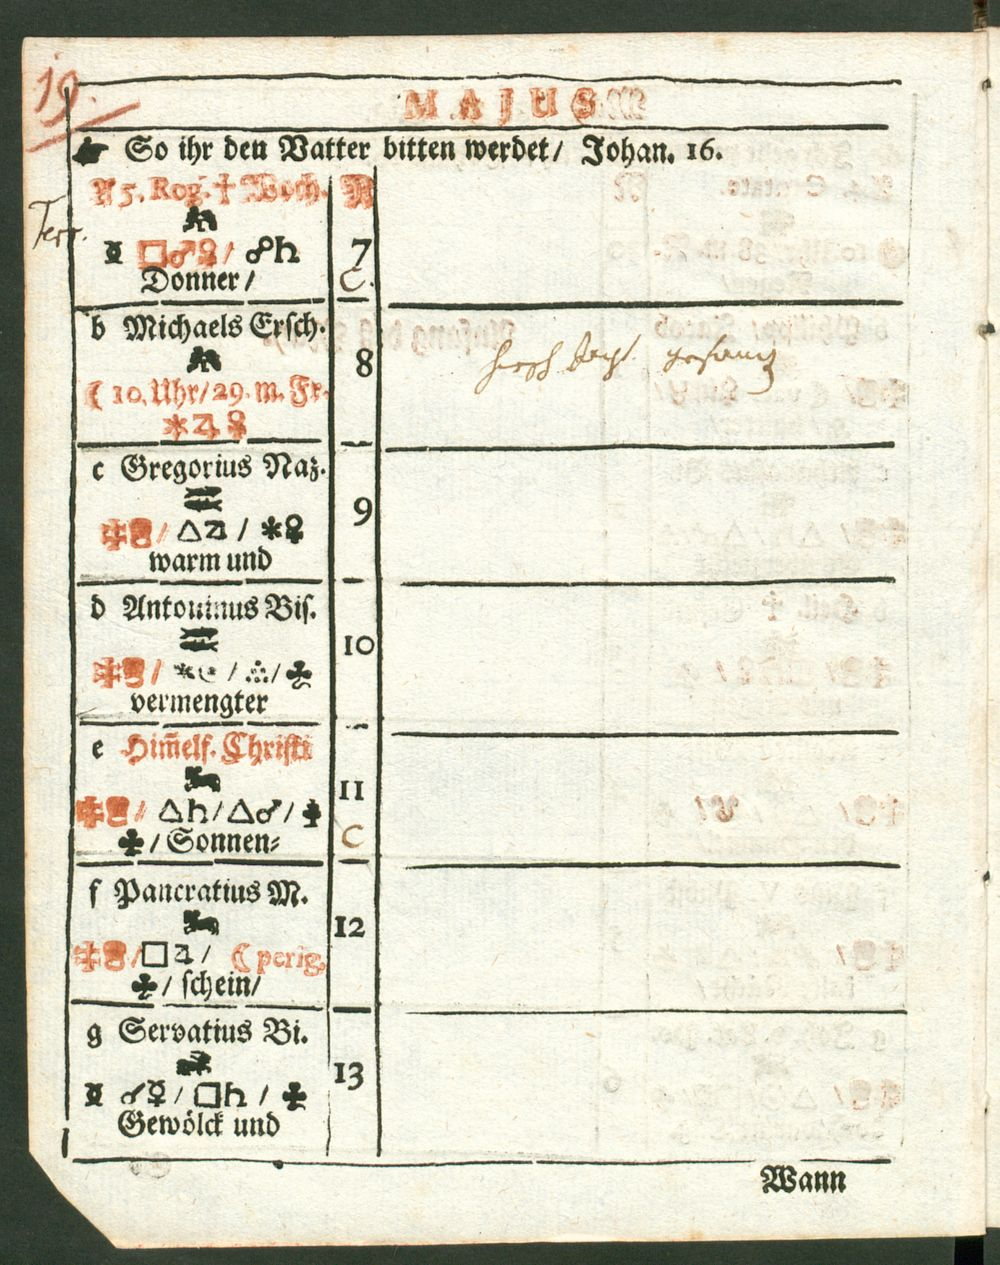 19.
MAJUS
☛ So ihr den Vatter bitten werdet/ Johan. 16.
A 5. Rog. † Woch. A
Terr.
□♂♀/ ☍♄ 7
Donner/ C.
b Michaels Ersch.
8
☾ 10. Uhr/ 29. m. Fr.
✶♃♀
c Gregorius Naz.
9
/ △♃ / ✶♀
warm und
d Antoninus Bis.
10
/ ✶☾ / ∴/ ♣
vermengter
e Him̃elf. Christi
11
/ △♄/△♂/
♣ / Sonnen⸗ C
f Pancratius M.
12
/□♃/ ☾perig.
♣ / schein/
g Servatius Bi.
13
☌☿/□♄ / ♣
Gewölck und
Wann